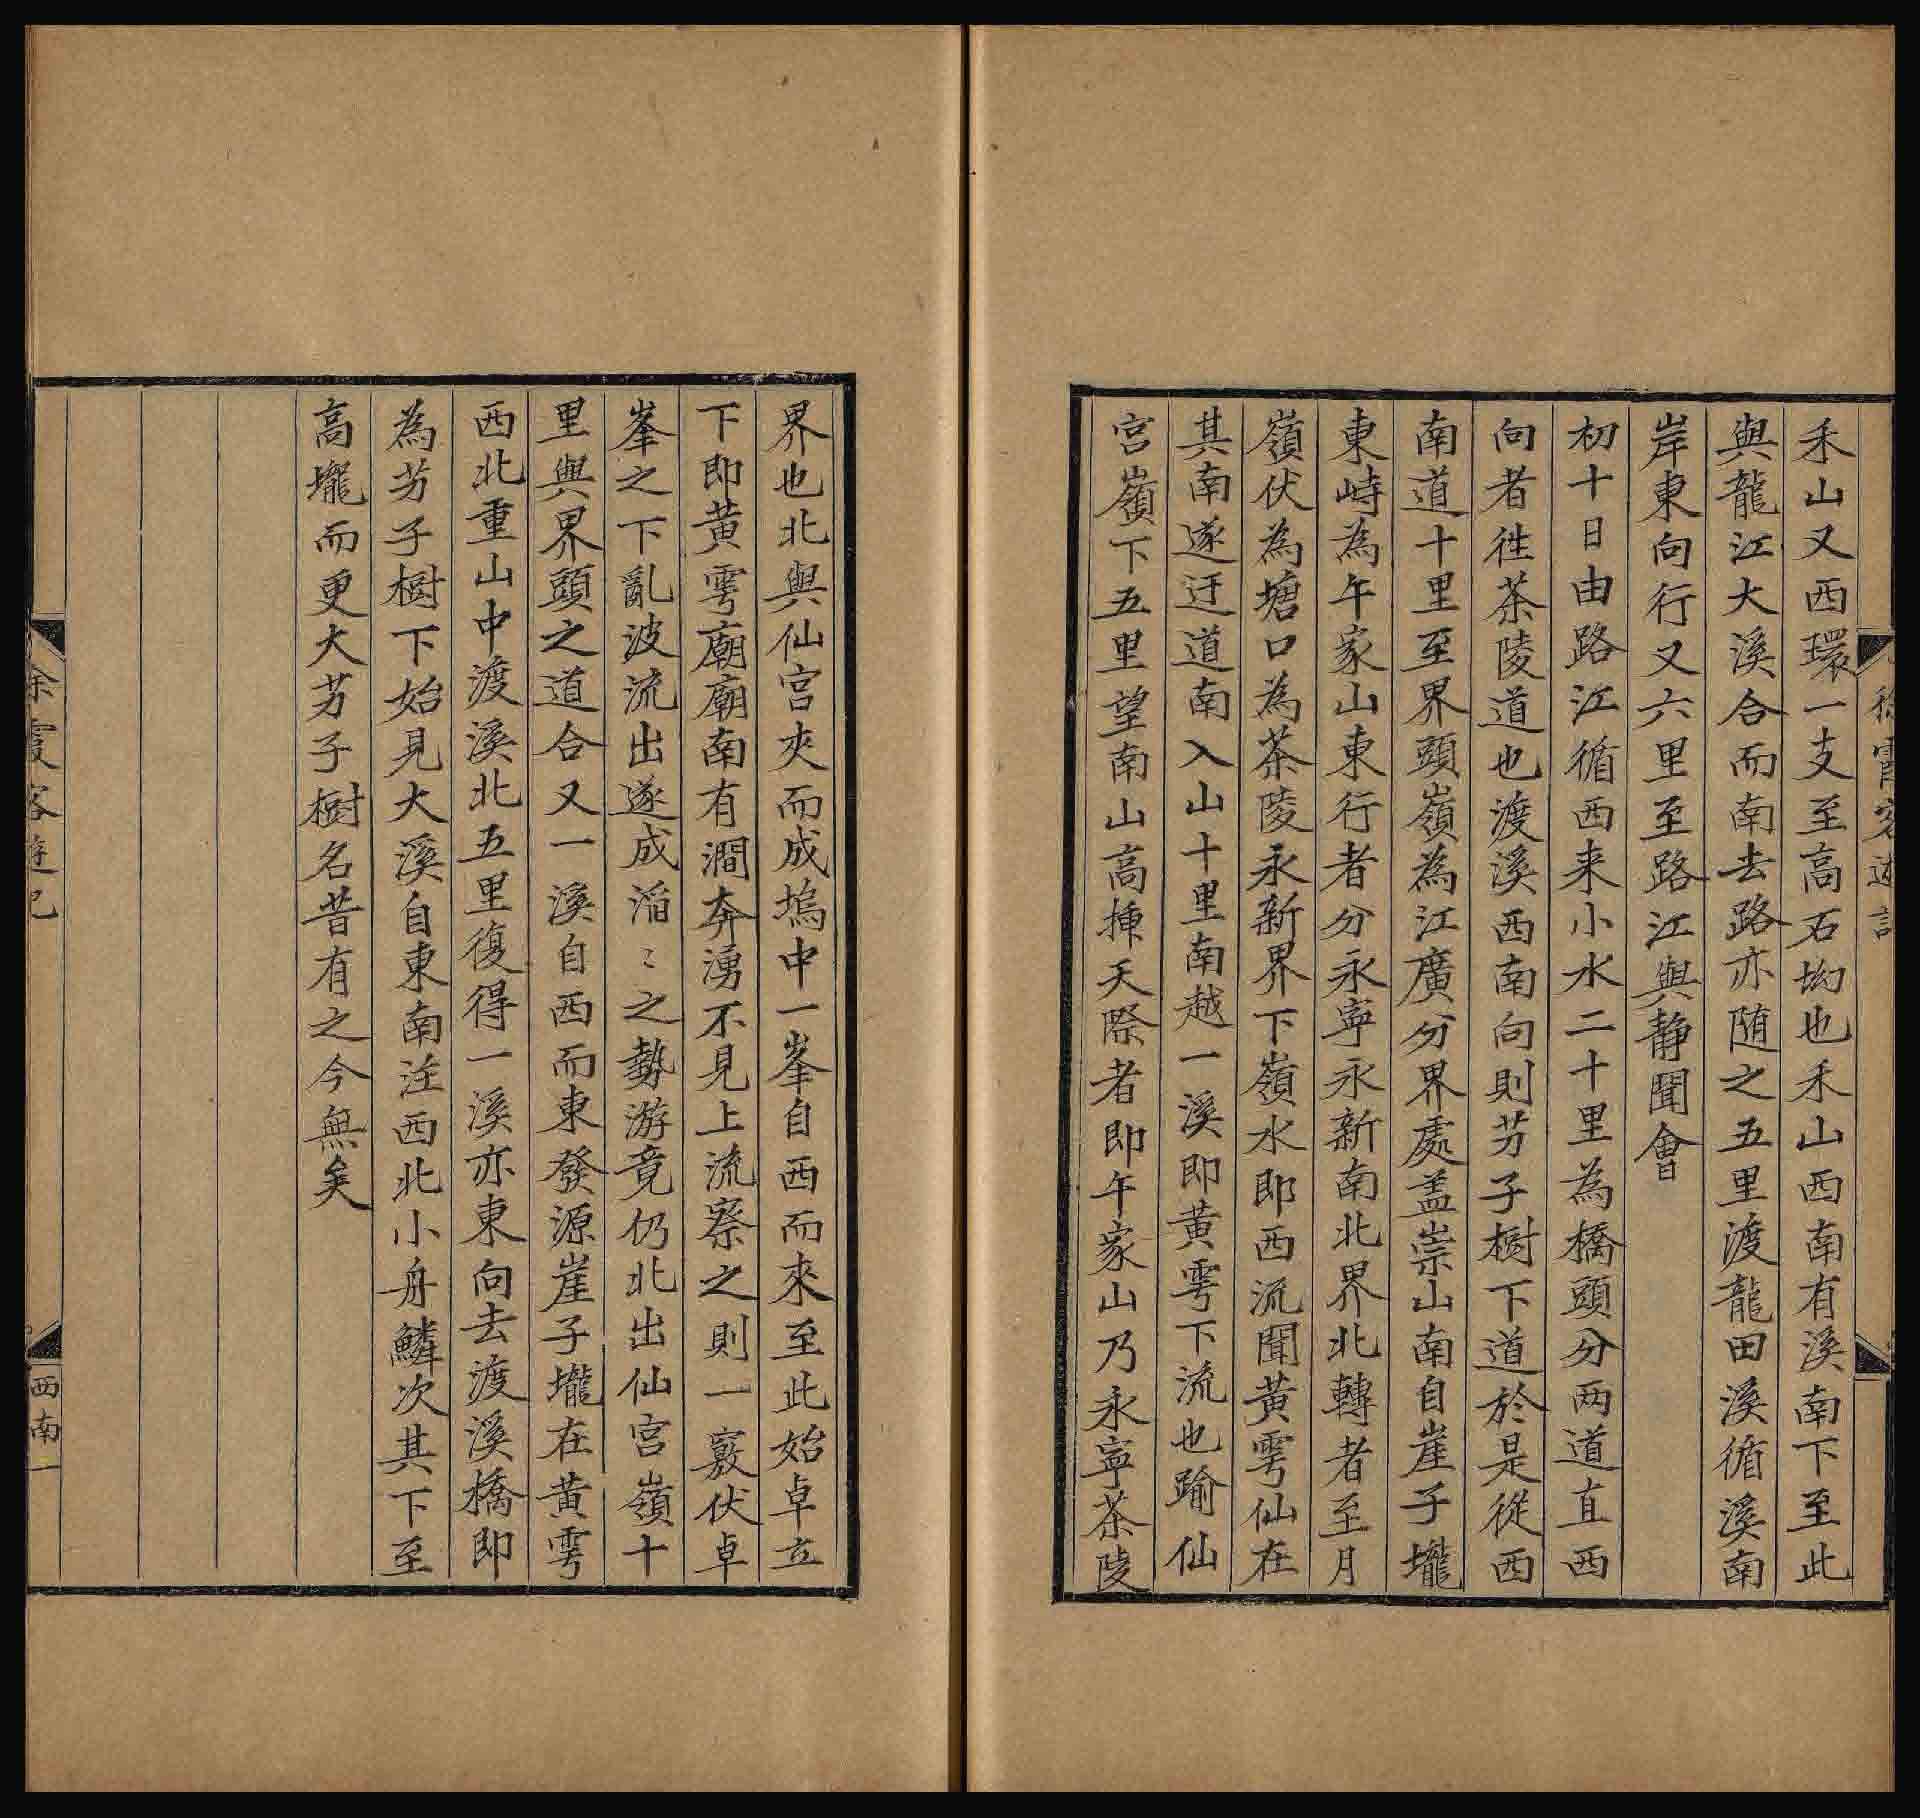 徐霞客遊記
禾山又西環一支至高石坳也禾山西南有溪南下至此
與龍江大溪合而南去路亦随之五里渡龍田溪循溪南
岸東向行又六里至路江與静聞會
初十日由路江循西来小水二十里為橋頭分两道直西
向者徃茶陵道也渡溪西南向則芳子樹下道於是從西
南道十里至界頭嶺為江廣分界處盖崇山南自崖子壠
東峙為午家山東行者分永寧永新南北界北轉者至月
嶺伏為塘口為茶陵永新界下嶺水即西流聞黄雩仙在
其南遂迂道南入山十里南越一溪即黄雩下流也踰仙
宫嶺下五里望南山高揷天際者即午家山乃永寧茶陵
界也北與仙宫夾而成塢中一峯自西而來至此始卓立
下即黄雩廟廟南有澗奔湧不見上流察之則一竅伏卓
峯之下亂波流出遂成滔〻之勢游竟仍北出仙宫嶺十
里與界頭之道合又一溪自西而東發源崖子壠在黄雩
西北重山中渡溪北五里復得一溪亦東向去渡溪橋即
為芳子樹下始見大溪自東南注西北小舟鱗次其下至
高壠而更大芳子樹名昔有之今無矣
徐霞客遊記
西南一